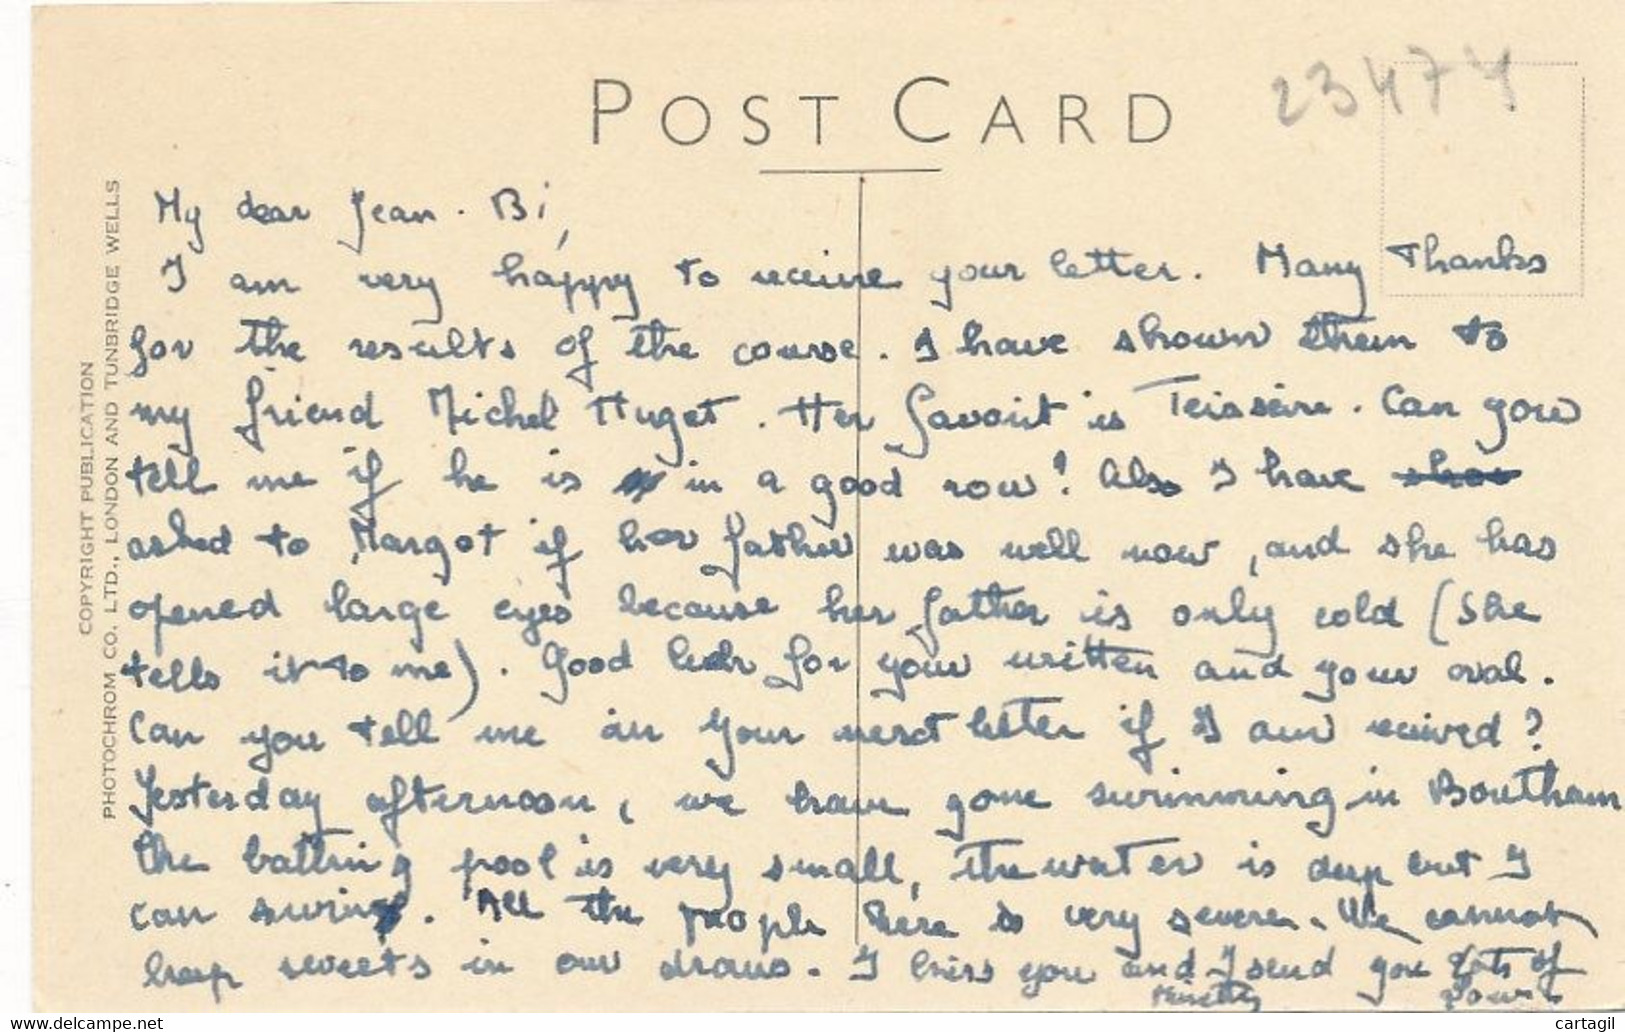 POST CARD
23474
COPYRIGHT PUBLICATION
PHOTOCHROM CO. LTD., LONDON AND TUNBRIDGE WELLS
My dear Jean. Bi,
I am very happy to receive your letter. Many Thanks
for the results of the course. I have shown them to
my friend Michel Huget. Her favorit is Teisseire. Can you
tell me if he is in a good row? Also I have
asked to Margot if her father was well now, and she has
opened large eyes because her father is only cold (She
tells it to me). Good luck for your written and your oral.
Can you tell me in your next letter if I am received?
Yesterday afternoon, we have gone swimming in Bootham
the bathing pool is very small, the water is deep but I
can swim. All the people here is very severe. We cannot
keep sweets in our draws. I kiss you and I send you lots of
cartagil
www.delcampe.net